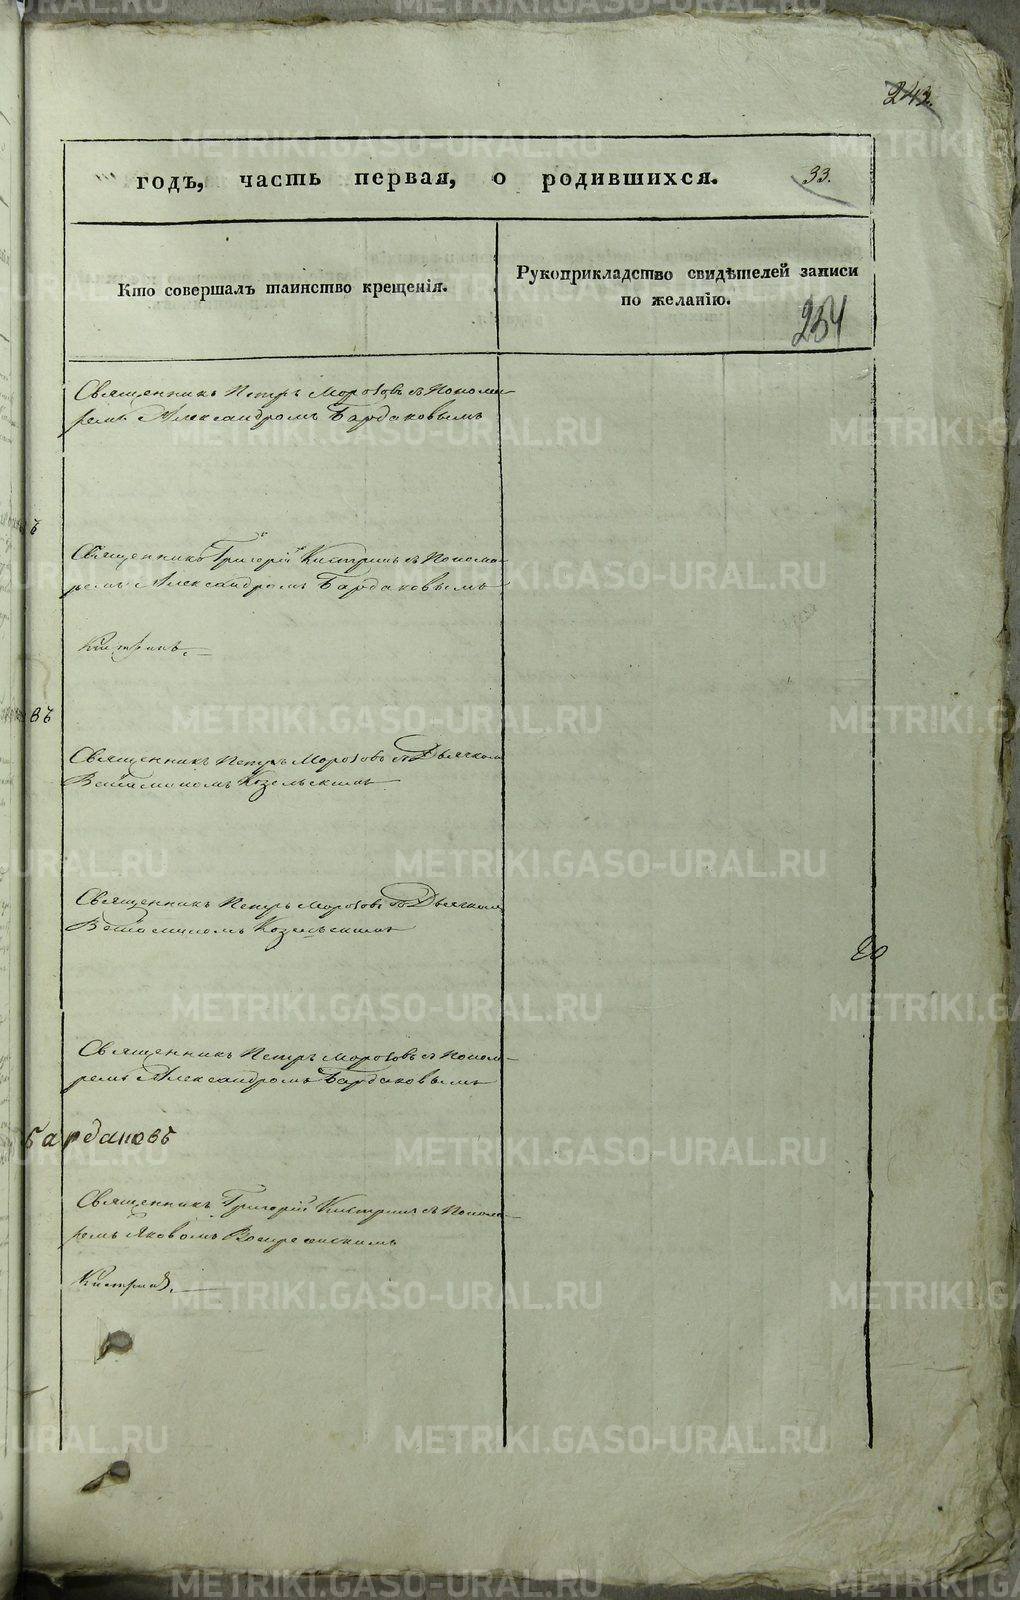 243.
годъ, часть первая, о родившихся. 33.
Кто совершалъ таинство крещенія.
Рукоприкладство свидѣтелей записи
по желанію.
254
Священникъ Петръ Морозовъ съ Поном
ремъ Александромъ Бардаковымъ
ъ
Священникъ Григорій Кистринъ съ Понома-
ремъ Александромъ Бардаковымъ
Кистринъ.
въ
Священникъ Петръ Морозовъ съ Дьячкомъ
Веніаминомъ Козельскимъ
Священникъ Петръ Морозовъ съ Дьячкомъ
Веніаминомъ Козельскимъ
20
Священникъ Петръ Морозовъ съ Поном-
ремъ Александромъ Бардаковымъ
Бардаковъ
Священникъ Григорій Кистринъ съ Понома-
ремъ Яковомъ Воскресенскимъ
Кистринъ.
METRIKI.GASO-URAL.RU